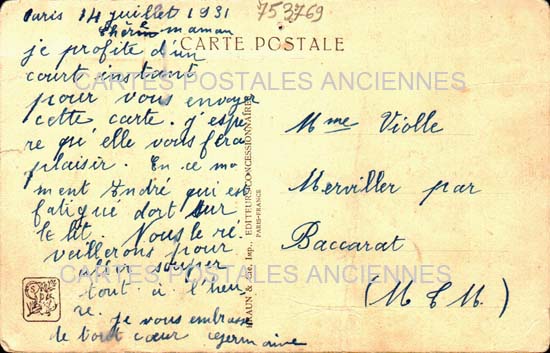 Paris 14 juillet 1931
753769
Chère maman
CARTE POSTALE
je profite d'un
court instant
pour vous envoyer
cette carte. j'espè
re qu'elle vous fera
plaisir. En ce mo
ment André qui est
fatigué dort sur
le lit. Nous le ré
veillerons pour
aller souper
tout à l'heu
re.
je vous embrasse
de tout cœur Germaine
CARTES POSTALES ANCIENNES
CARTES POSTALES ANCIENNES
BRAUN & Cie, Imp., EDITEURS-CONCESSIONNAIRES
PARIS-FRANCE
Mme Violle
Merviller par
Baccarat
(M & M)